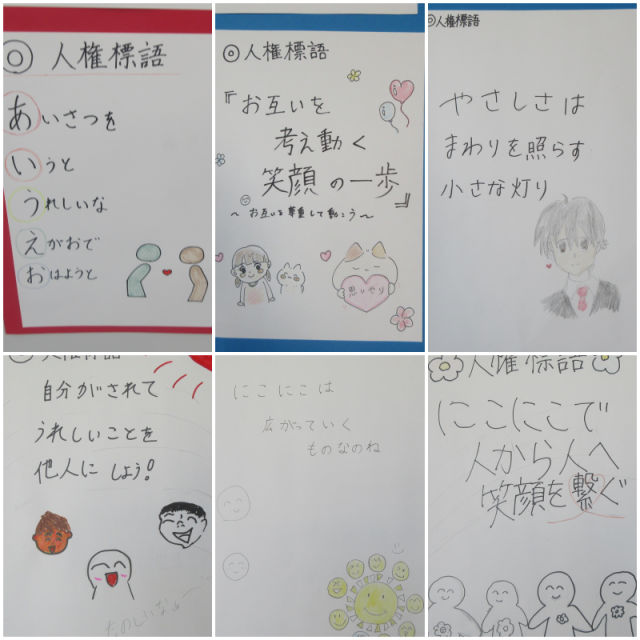 ◎人権標語
あいさつを
いうと
うれしいな
えがおで
おはようと
◎人権標語
『お互いを
考え動く
笑顔の一歩』
～お互いを尊重して動こう～
思いやり
◎人権標語
やさしさは
まわりを照らす
小さな灯り
人権標語
自分がされて
うれしいことを
他人にしよう!
たのしいなぁ～
にこにこは
広がっていく
ものなのね
人権標語
にこにこで
人から人へ
笑顔を繋ぐ